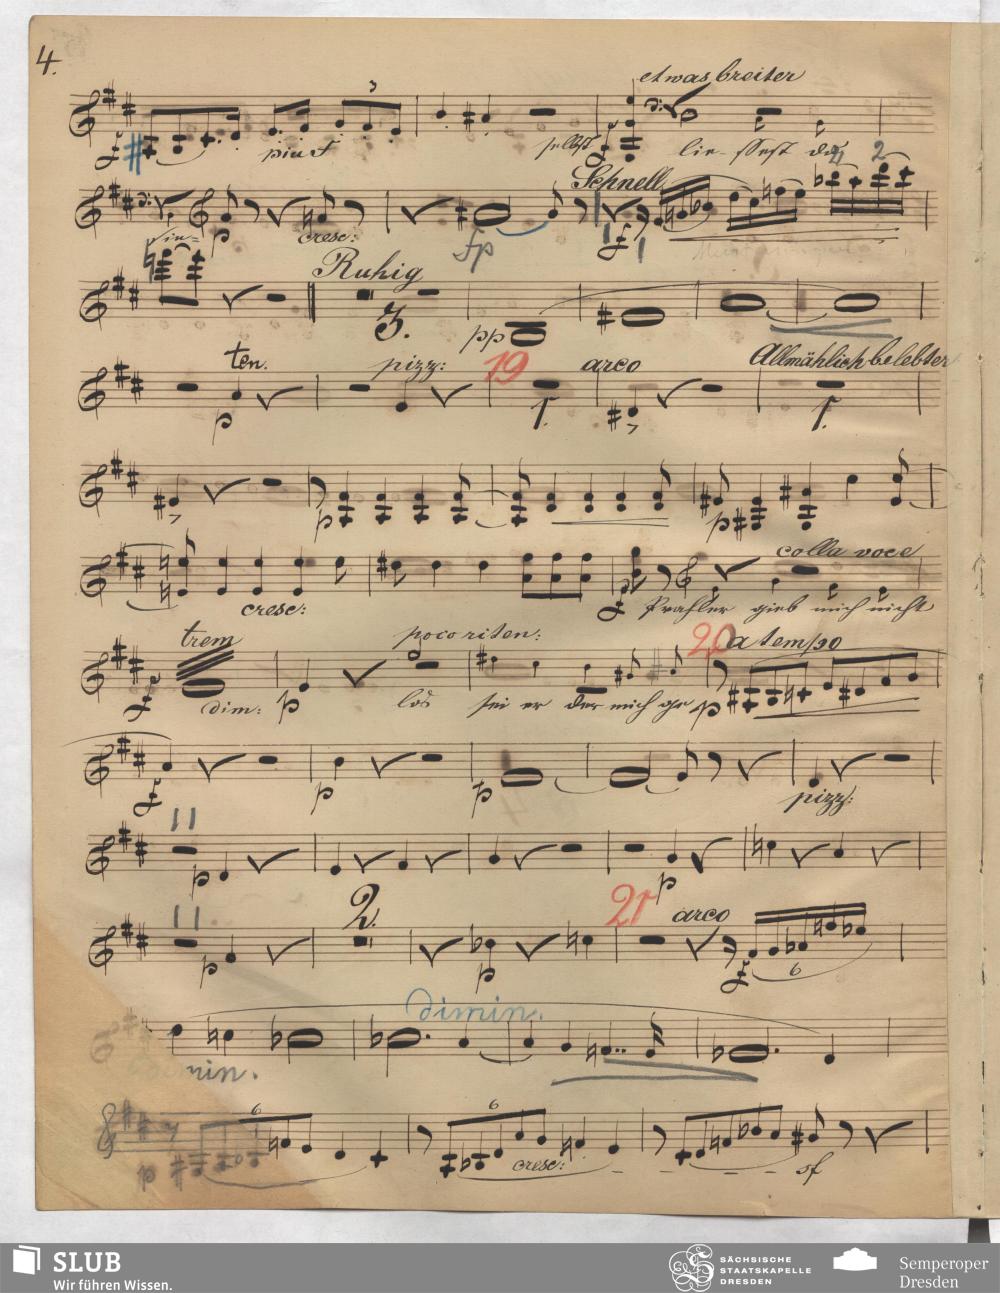 4.
etwas breiter
3
f più f selbst f lie- ssest da
4 2
Schnell
p cresc: fp f
Ruhig
3. pp
ten. pizz: 19 arco Allmählich belebter
p 1. 1.
p p
colla voce
cresc: f Prahler gieb mich nicht
trem poco riten: 20 a tempo
f dim: p los sei er der mich ge p
f p p pizz:
11
p p
11 2. 21 arco
p p f 6
dimin.
dimin.
6 6
p cresc: sf
SLUB
Wir führen Wissen.
SÄCHSISCHE
STAATSKAPELLE
DRESDEN
Semperoper
Dresden